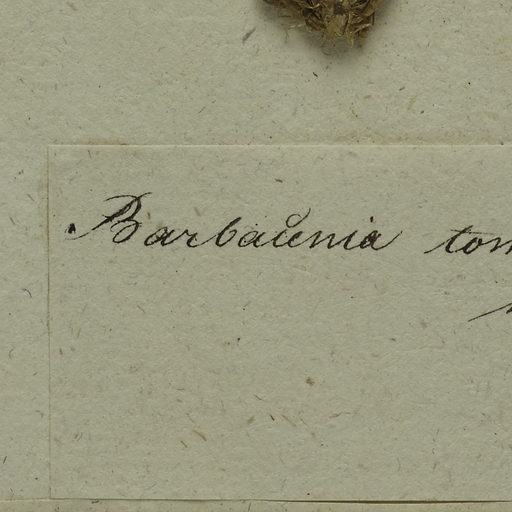 Barbacenia tom